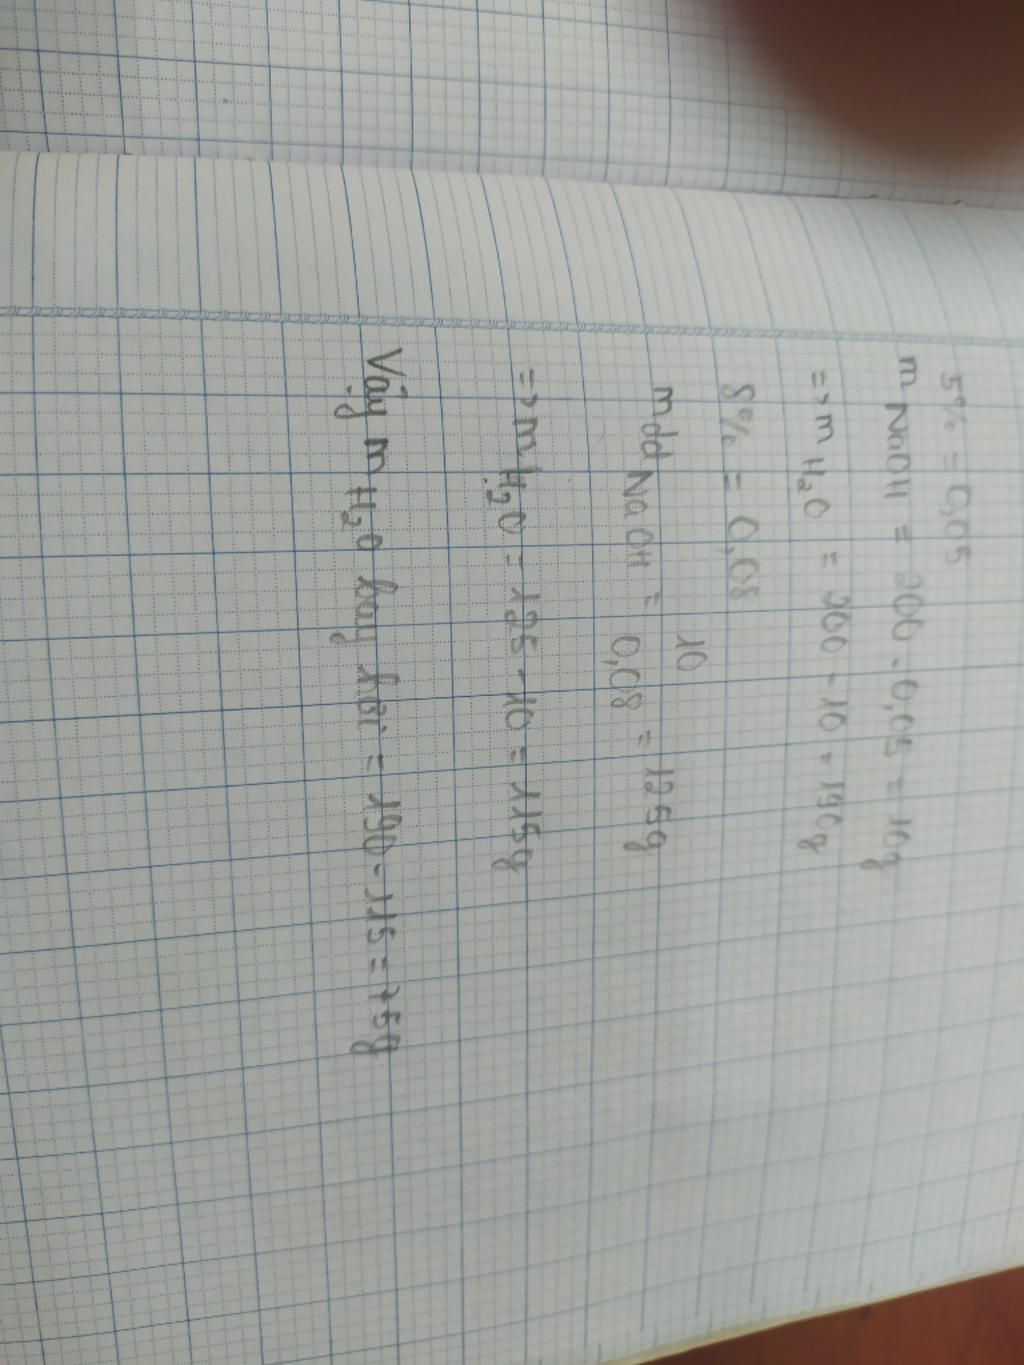 5% = 0,05
m NaOH = 200 . 0,05 = 10g
=> m H₂O = 200 - 10 = 190g
8% = 0,08
mdd NaOH = 10 / 0,08 = 125g
=> m H₂O = 125 - 10 = 115g
Vậy m H₂O bay hơi = 190 - 115 = 75g